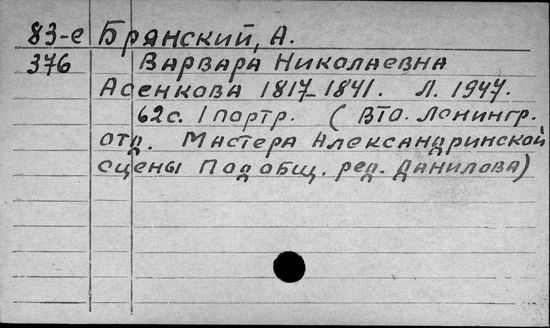 83-е Брянский, А.
376 Варвара Николаевна
Асенкова 1817-1841. Л. 1947.
62с. 1 портр. (Вто. Ленингр.
отд. Мастера Александринской
сцены Под общ. ред. Данилова)